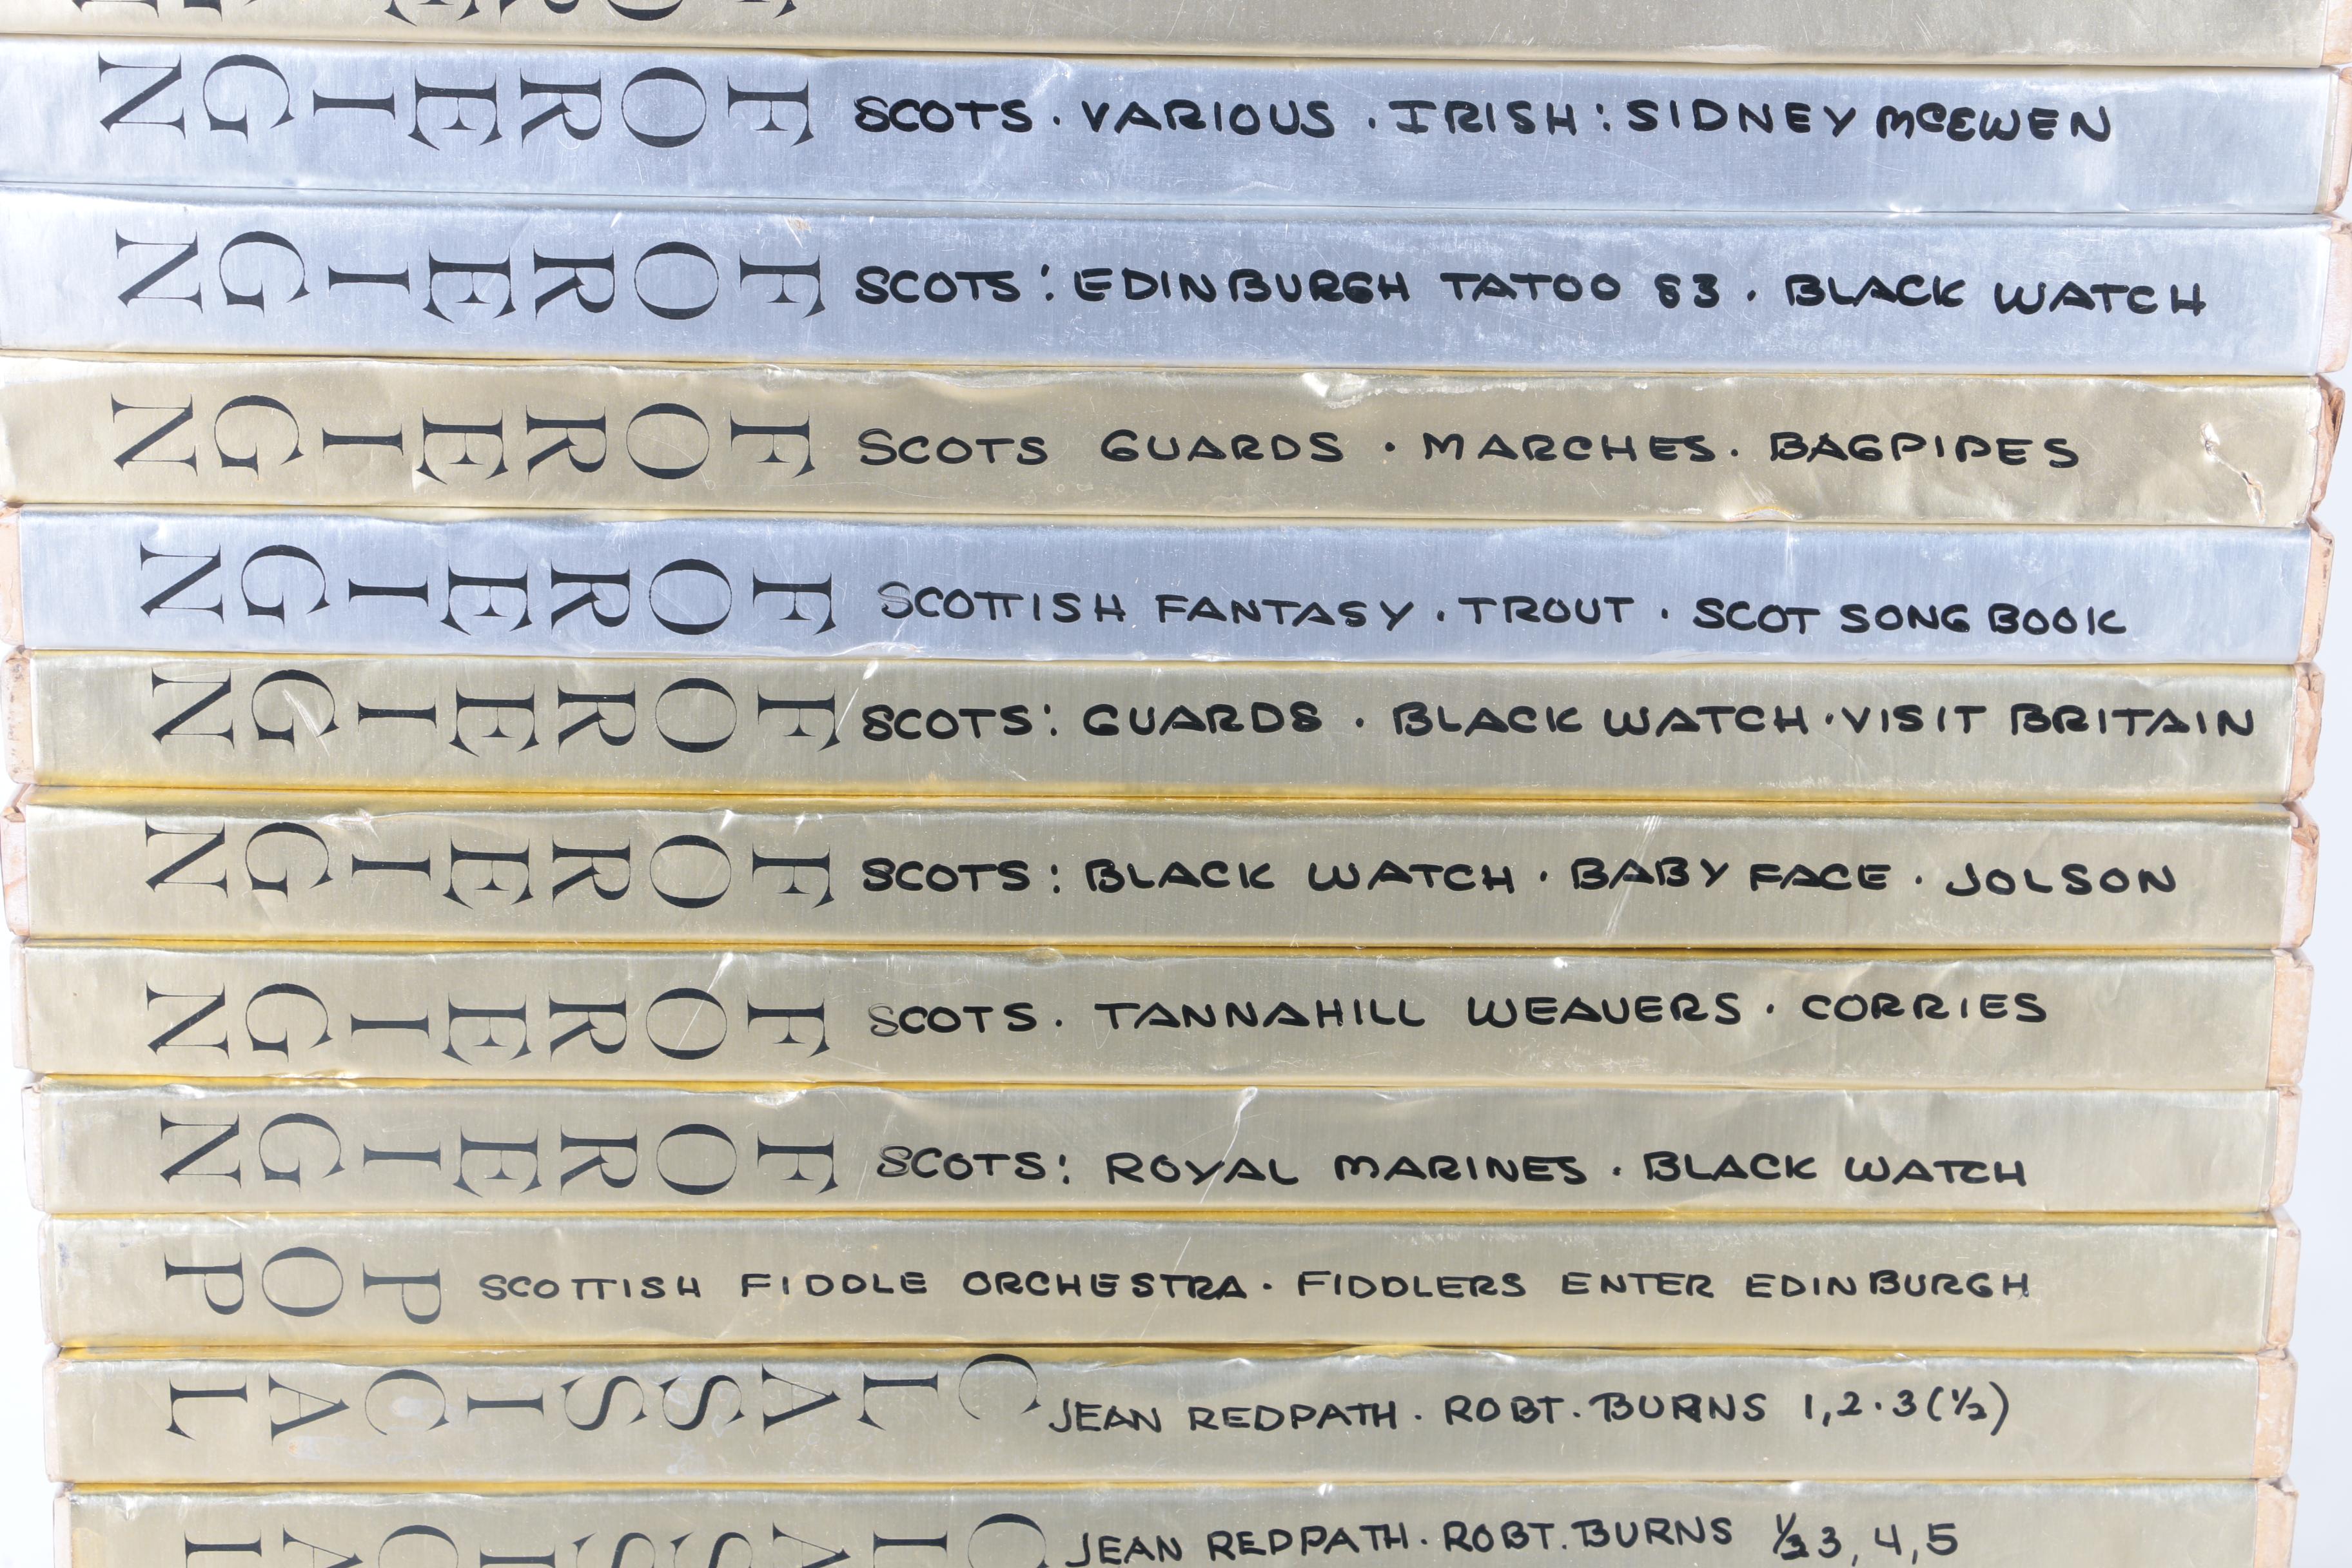 FOREIGN SCOTS · VARIOUS · IRISH: SIDNEY MCEWEN
FOREIGN SCOTS: EDINBURGH TATOO 83 · BLACK WATCH
FOREIGN SCOTS GUARDS · MARCHES · BAGPIPES
FOREIGN SCOTTISH FANTASY · TROUT · SCOT SONG BOOK
FOREIGN SCOTS: GUARDS · BLACK WATCH · VISIT BRITAIN
FOREIGN SCOTS: BLACK WATCH · BABY FACE · JOLSON
FOREIGN SCOTS. TANNAHILL WEAVERS · CORRIES
FOREIGN SCOTS: ROYAL MARINES · BLACK WATCH
POP SCOTTISH FIDDLE ORCHESTRA · FIDDLERS ENTER EDINBURGH
CLASSICAL JEAN REDPATH · ROBT. BURNS 1,2·3 (1/2)
CLASSICAL JEAN REDPATH · ROBT. BURNS 1/2 3, 4, 5